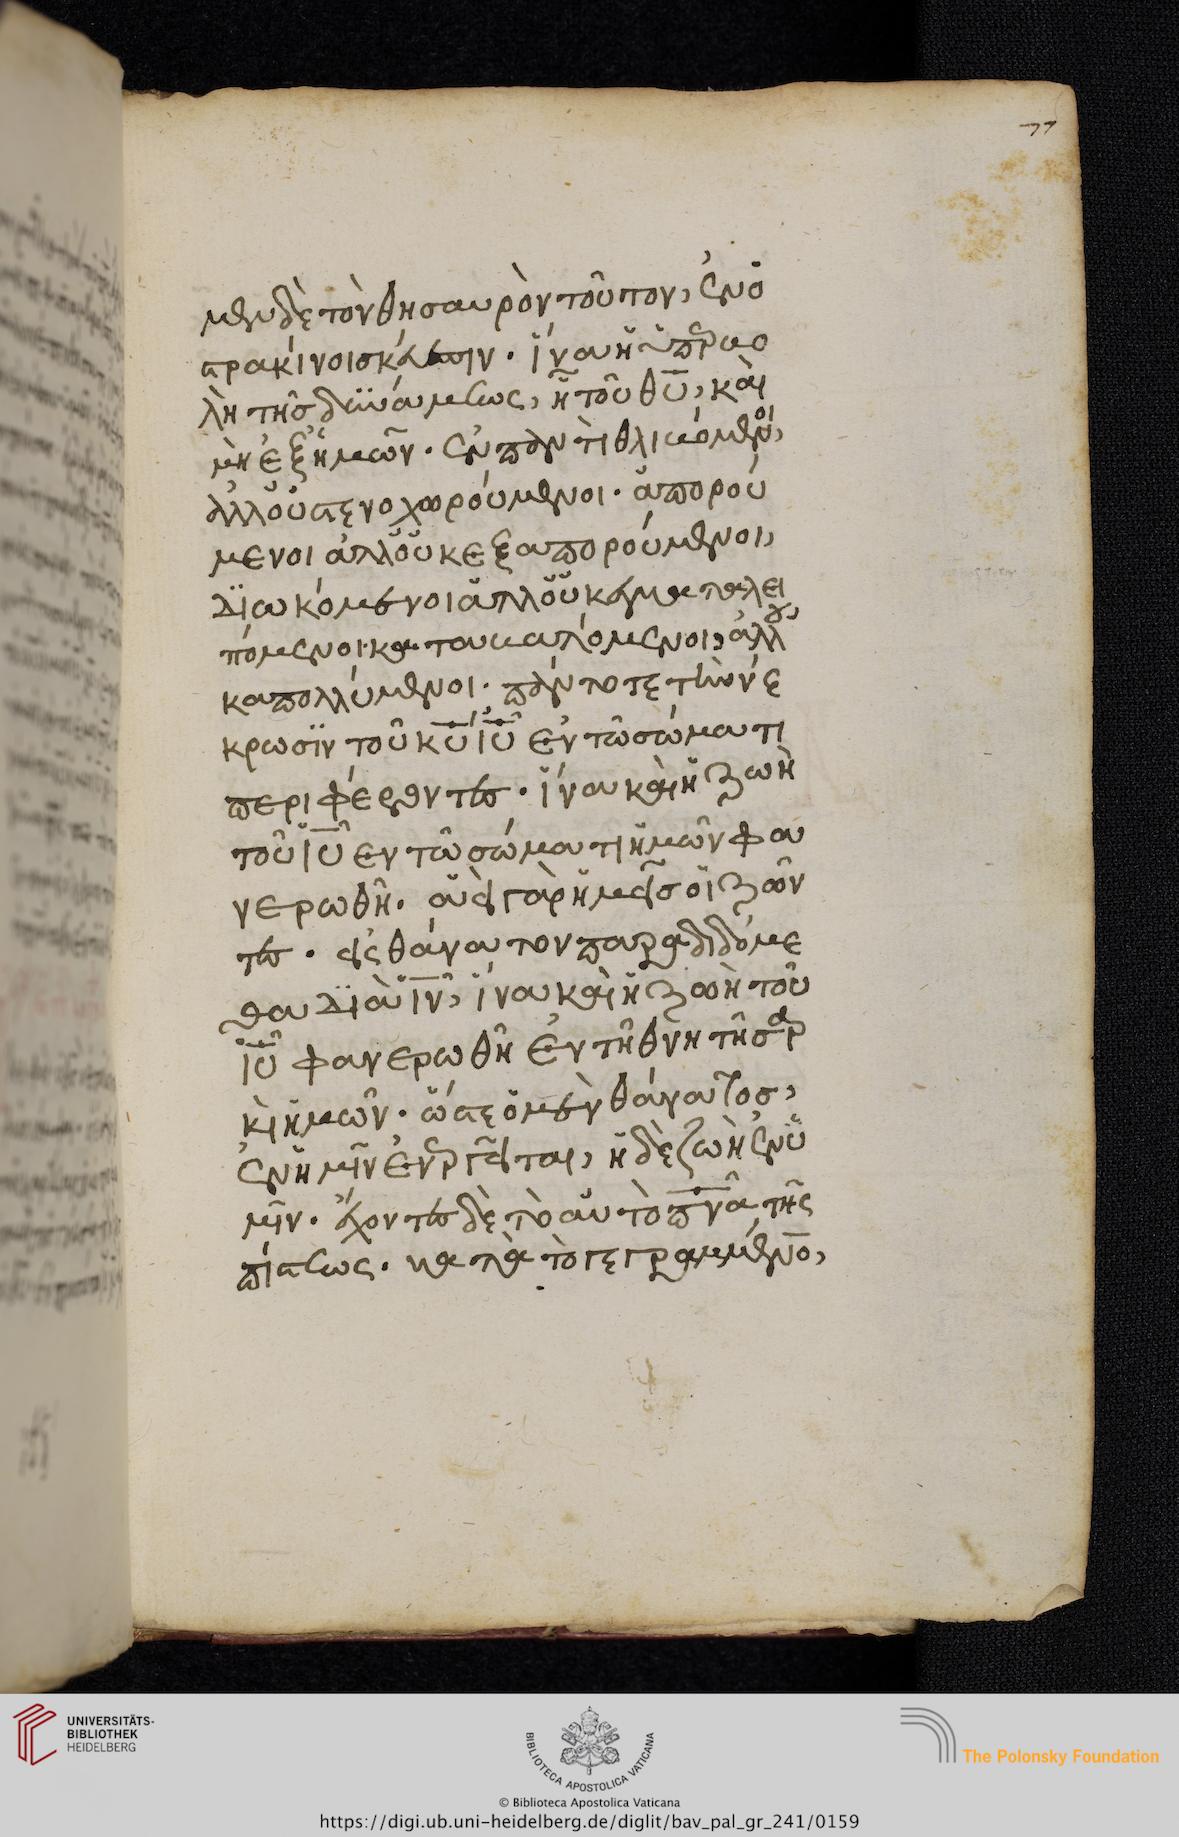 77
μεν δὲ τὸν θησαυρὸν τοῦτον, ἐν ὀ
στρακίνοις σκεύεσιν· ἵνα ἡ ὑπερβο
λὴ τῆς δυνάμεως, ἦ τοῦ θῦ, καὶ
μὴ ἐξ ἡμῶν· ἐν παντὶ θλιβόμενοι,
ἀλλ' οὐ στενοχωρούμενοι· ἀπορού
μενοι ἀλλ' οὐκ ἐξαπορούμενοι,
διωκόμενοι ἀλλ' οὐκ ἐγκαταλει
πόμενοι· καταβαλλόμενοι, ἀλλ' οὐ
κ ἀπολλύμενοι· πάντοτε τὴν νέ
κρωσϊν τοῦ κῦ ἰῦ ἐν τῶ σώματι
περιφέροντες· ἵνα καὶ ἡ ζωὴ
τοῦ ἰῦ ἐν τῶ σώματι ἡμῶν φα
νερωθῆ· ἀεὶ γὰρ ἡμεῖς οἱ ζῶν
τες· εἰς θάνατον παραδιδόμε
θα διὰ ἰν, ἵνα καὶ ἡ ζωὴ τοῦ
ἰῦ φανερωθῆ ἐν τῆ θνητῆ σαρ
κὶ ἡμῶν· ὥστε ὁ μὲν θάνατος,
ἐν ἡμῖν ἐνεργεῖται, ἡ δὲ ζωὴ ἐν ὑ
μῖν· ἔχοντες δὲ τὸ αὐτὸ πνα τῆς
πίστεως· κατὰ τὸ γεγραμμένον,
UNIVERSITÄTS-
BIBLIOTHEK
HEIDELBERG
BIBLIOTECA APOSTOLICA VATICANA
The Polonsky Foundation
© Biblioteca Apostolica Vaticana
https://digi.ub.uni-heidelberg.de/diglit/bav_pal_gr_241/0159